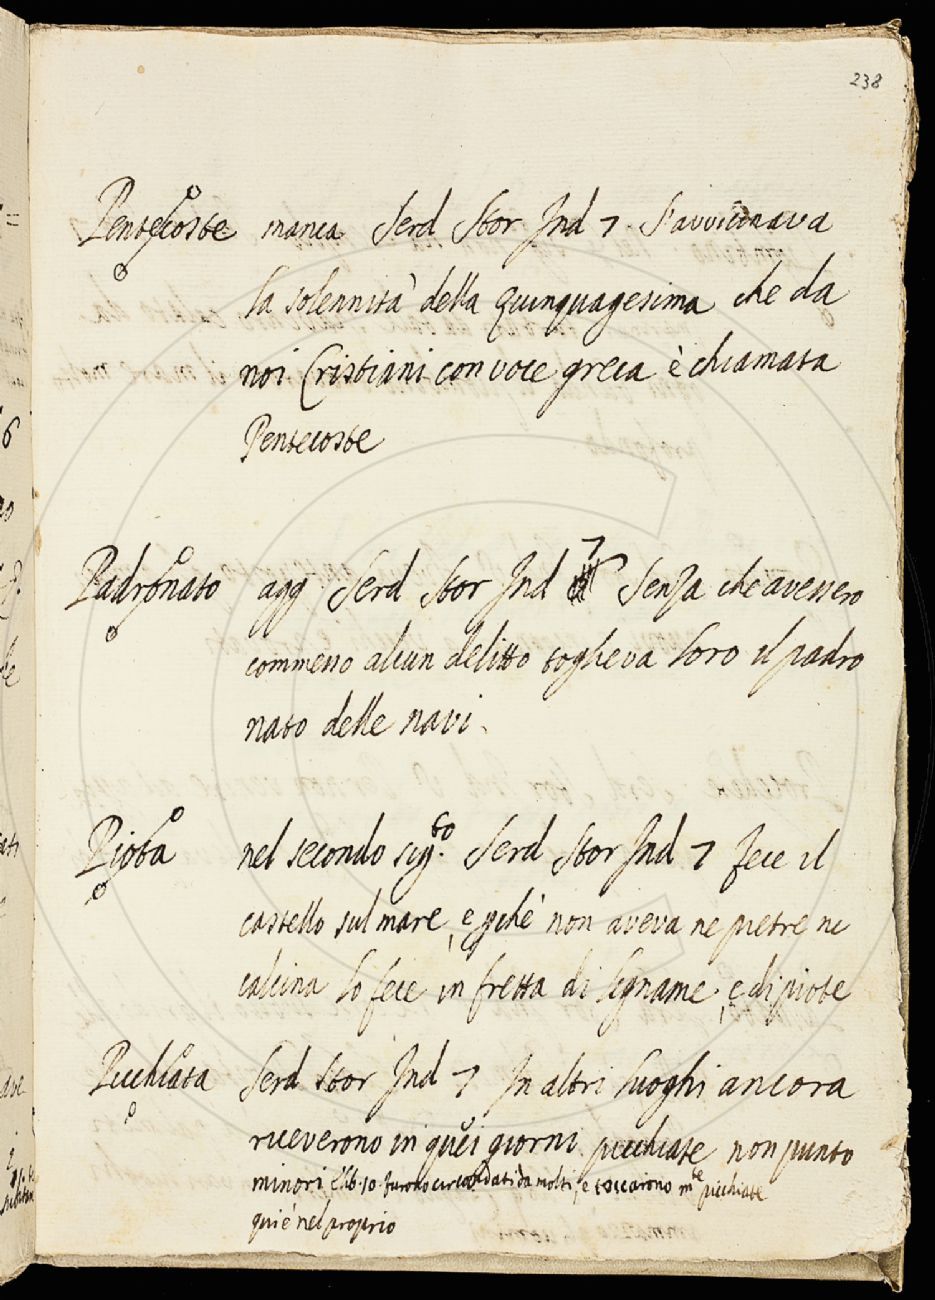 238
Pentecoste manca Serd Stor Ind 7. S'avvicinava
la solennità della quinquagesima che da
noi Cristiani con voce greca è chiamata
Pentecoste
Padronato agg Serd Stor Ind 7 Senza che avessero
commesso alcun delitto toglieva loro il padro
nato delle navi.
Piota nel secondo sig.to Serd Stor Ind 7 fece il
castello sul mare, e pchè non aveva ne pietre ne
calcina lo fece in fretta di legname, e di piote
Picchiata Serd Stor Ind 7 In altri luoghi ancora
riceverono in quei giorni picchiate non punto
minori e lib. 10. furono circondati da molti, e toccarono mte picchiate
qui è nel proprio